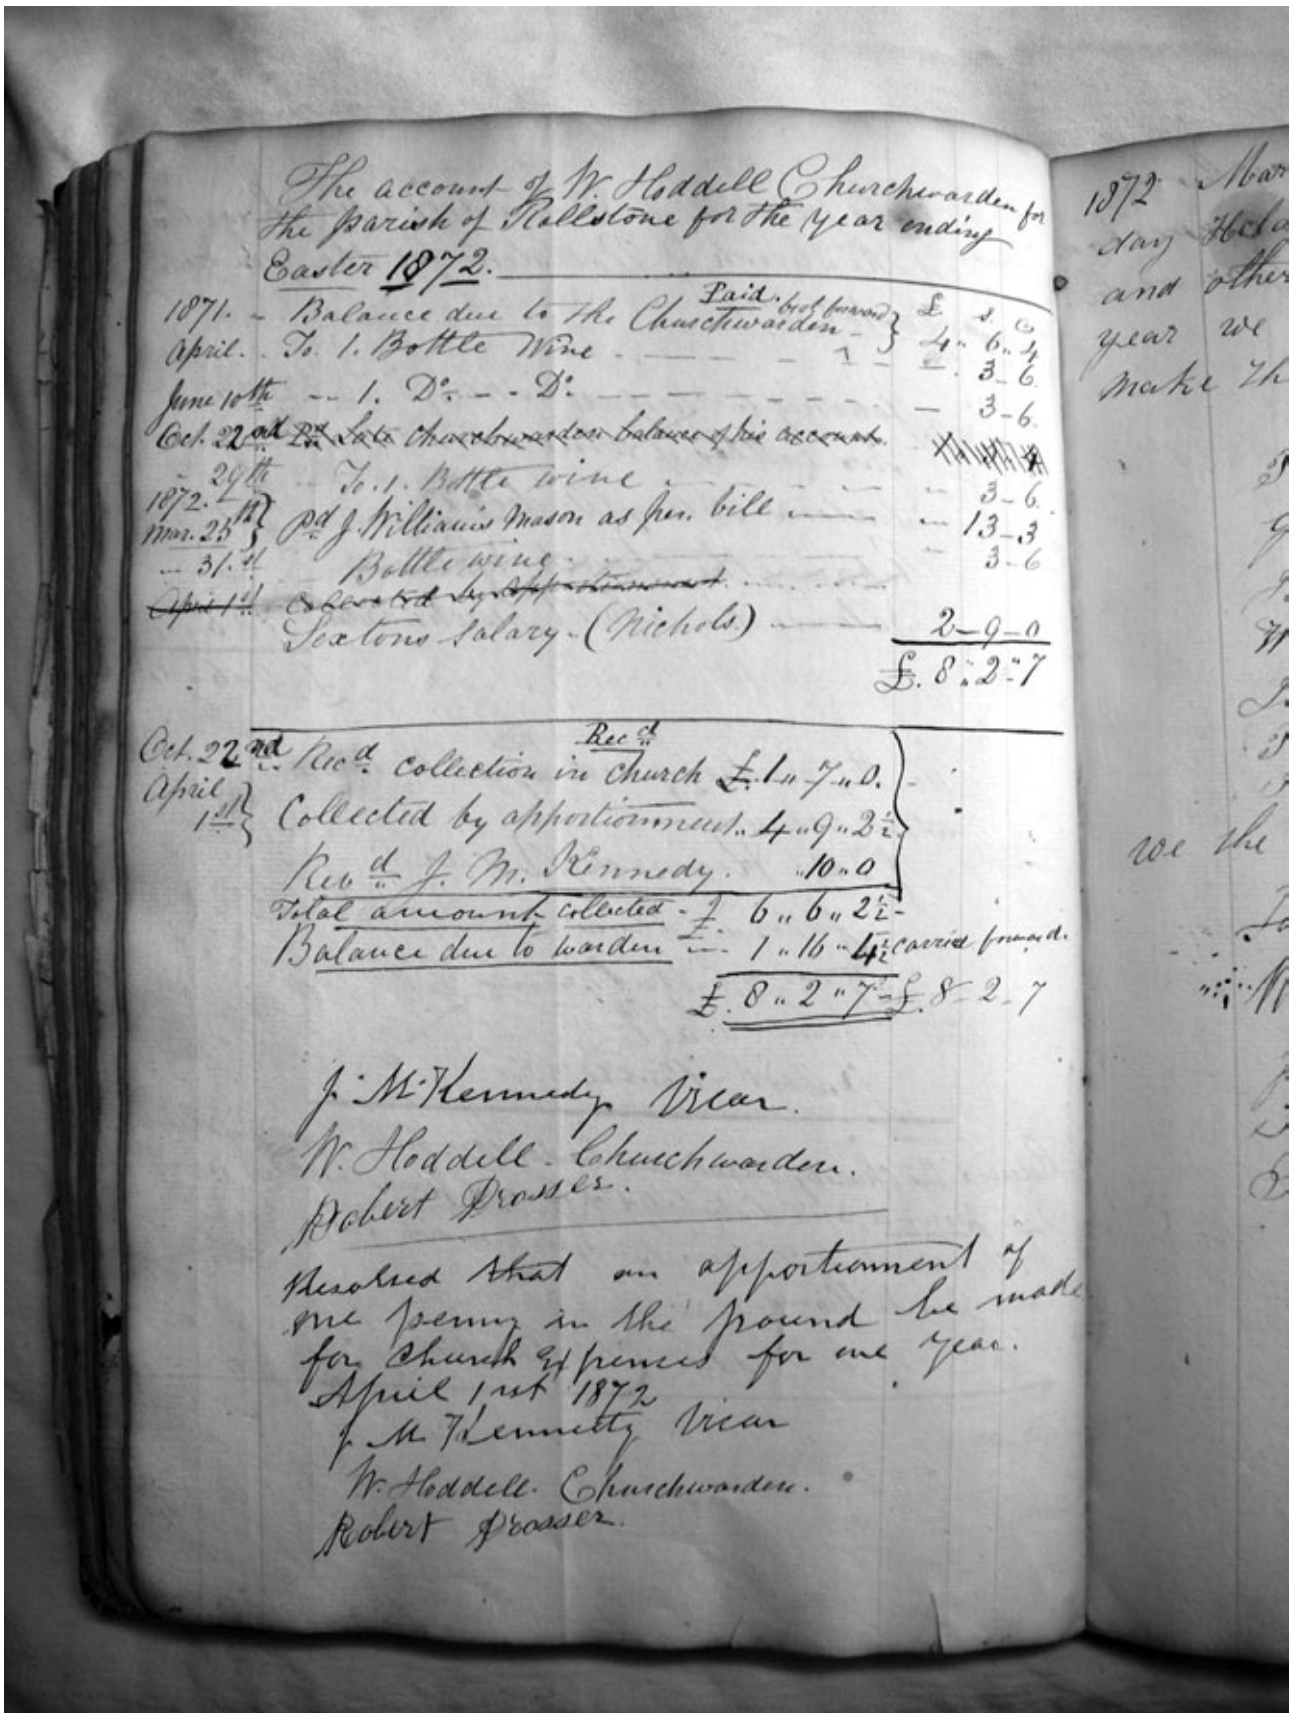 The account of W. Hoddell Churchwarden for
the parish of Rollstone for the year ending
Easter 1872.
Paid. brot forward £ s. d
1871. - Balance due to the Churchwarden - } 4 " 6 " 4
April. - To. 1. Bottle Wine - - - - 3 - 6.
June 10th - - 1. Do. - - Do. - - - - - 3 - 6.
Oct. 22nd Pd Late Churchwarden balance of his account.
- 29th To. 1. Bottle wine - - - - 3 - 6.
1872.
Mar. 25th } Pd J. Williams Mason as per. bill - - 13 - 3
- 31.st Bottle wine. - - - 3 - 6
April 1st Collected by Apportionment. - - -
Sextons Salary - (Nichols.) - 2 - 9 - 0
£. 8 " 2 " 7
Recd
Oct. 22nd Recd collection in church £. 1 " 7 " 0.
April
1st } Collected by apportionment " 4 " 9 " 2 ½
Revd J. M. Kennedy. " 10 " 0
Total amount collected - £ 6 " 6 " 2 ½ -
Balance due to warden - 1 " 16 " 4 ½ carried forward.
£. 8 " 2 " 7 - £. 8 - 2 - 7
J. M. Kennedy Vicar.
W. Hoddell. Churchwarden.
Robert Prosser.
Resolved that an apportionment of
one penny in the pound be made
for church Expenses for one year.
April 1st 1872
J. M. Kennedy Vicar
W. Hoddell. Churchwarden.
Robert Prosser.
1872 Mar
day Held
and other
year we
make th
we the